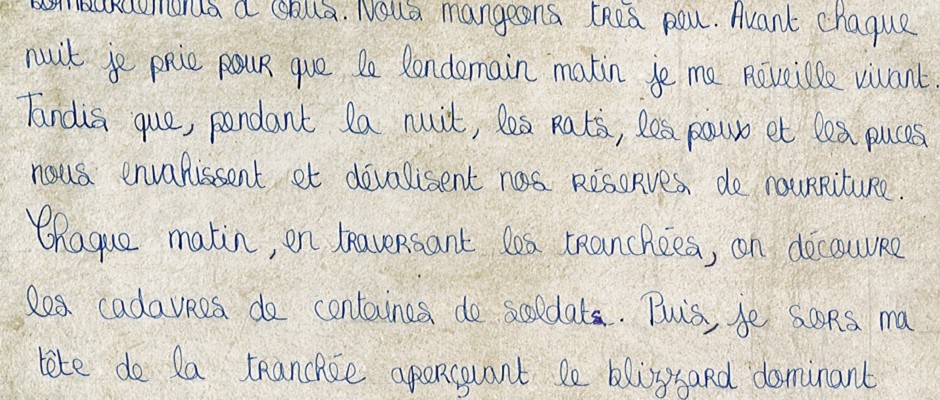 bombardements d'obus. Nous mangeons très peu. Avant chaque
nuit je prie pour que le lendemain matin je me réveille vivant.
Tandis que, pendant la nuit, les rats, les poux et les puces
nous envahissent et dévalisent nos réserves de nourriture.
Chaque matin, en traversant les tranchées, on découvre
les cadavres de centaines de soldats. Puis, je sors ma
tête de la tranchée aperçevant le blizzard dominant